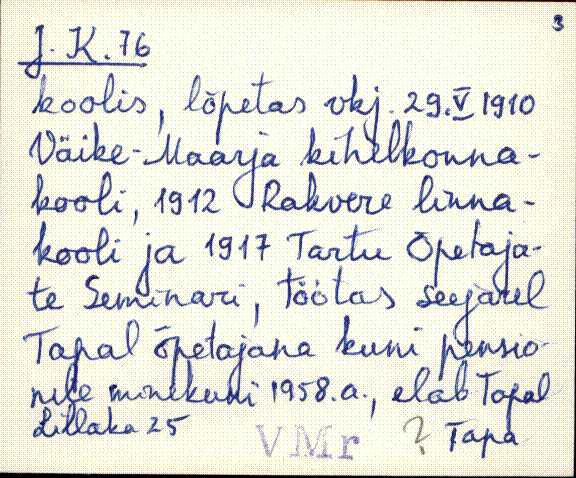 3
J. K. 76
koolis, lõpetas vkj. 29.V 1910
Väike-Maarja kihelkonna-
kooli, 1912 Rakvere linna-
kooli ja 1917 Tartu Õpetaja-
te Seminari, töötas seejärel
Tapal õpetajana kuni pensio-
nile minekuni 1958.a., elab Tapal
Lillaka 25
VMr ? Tapa